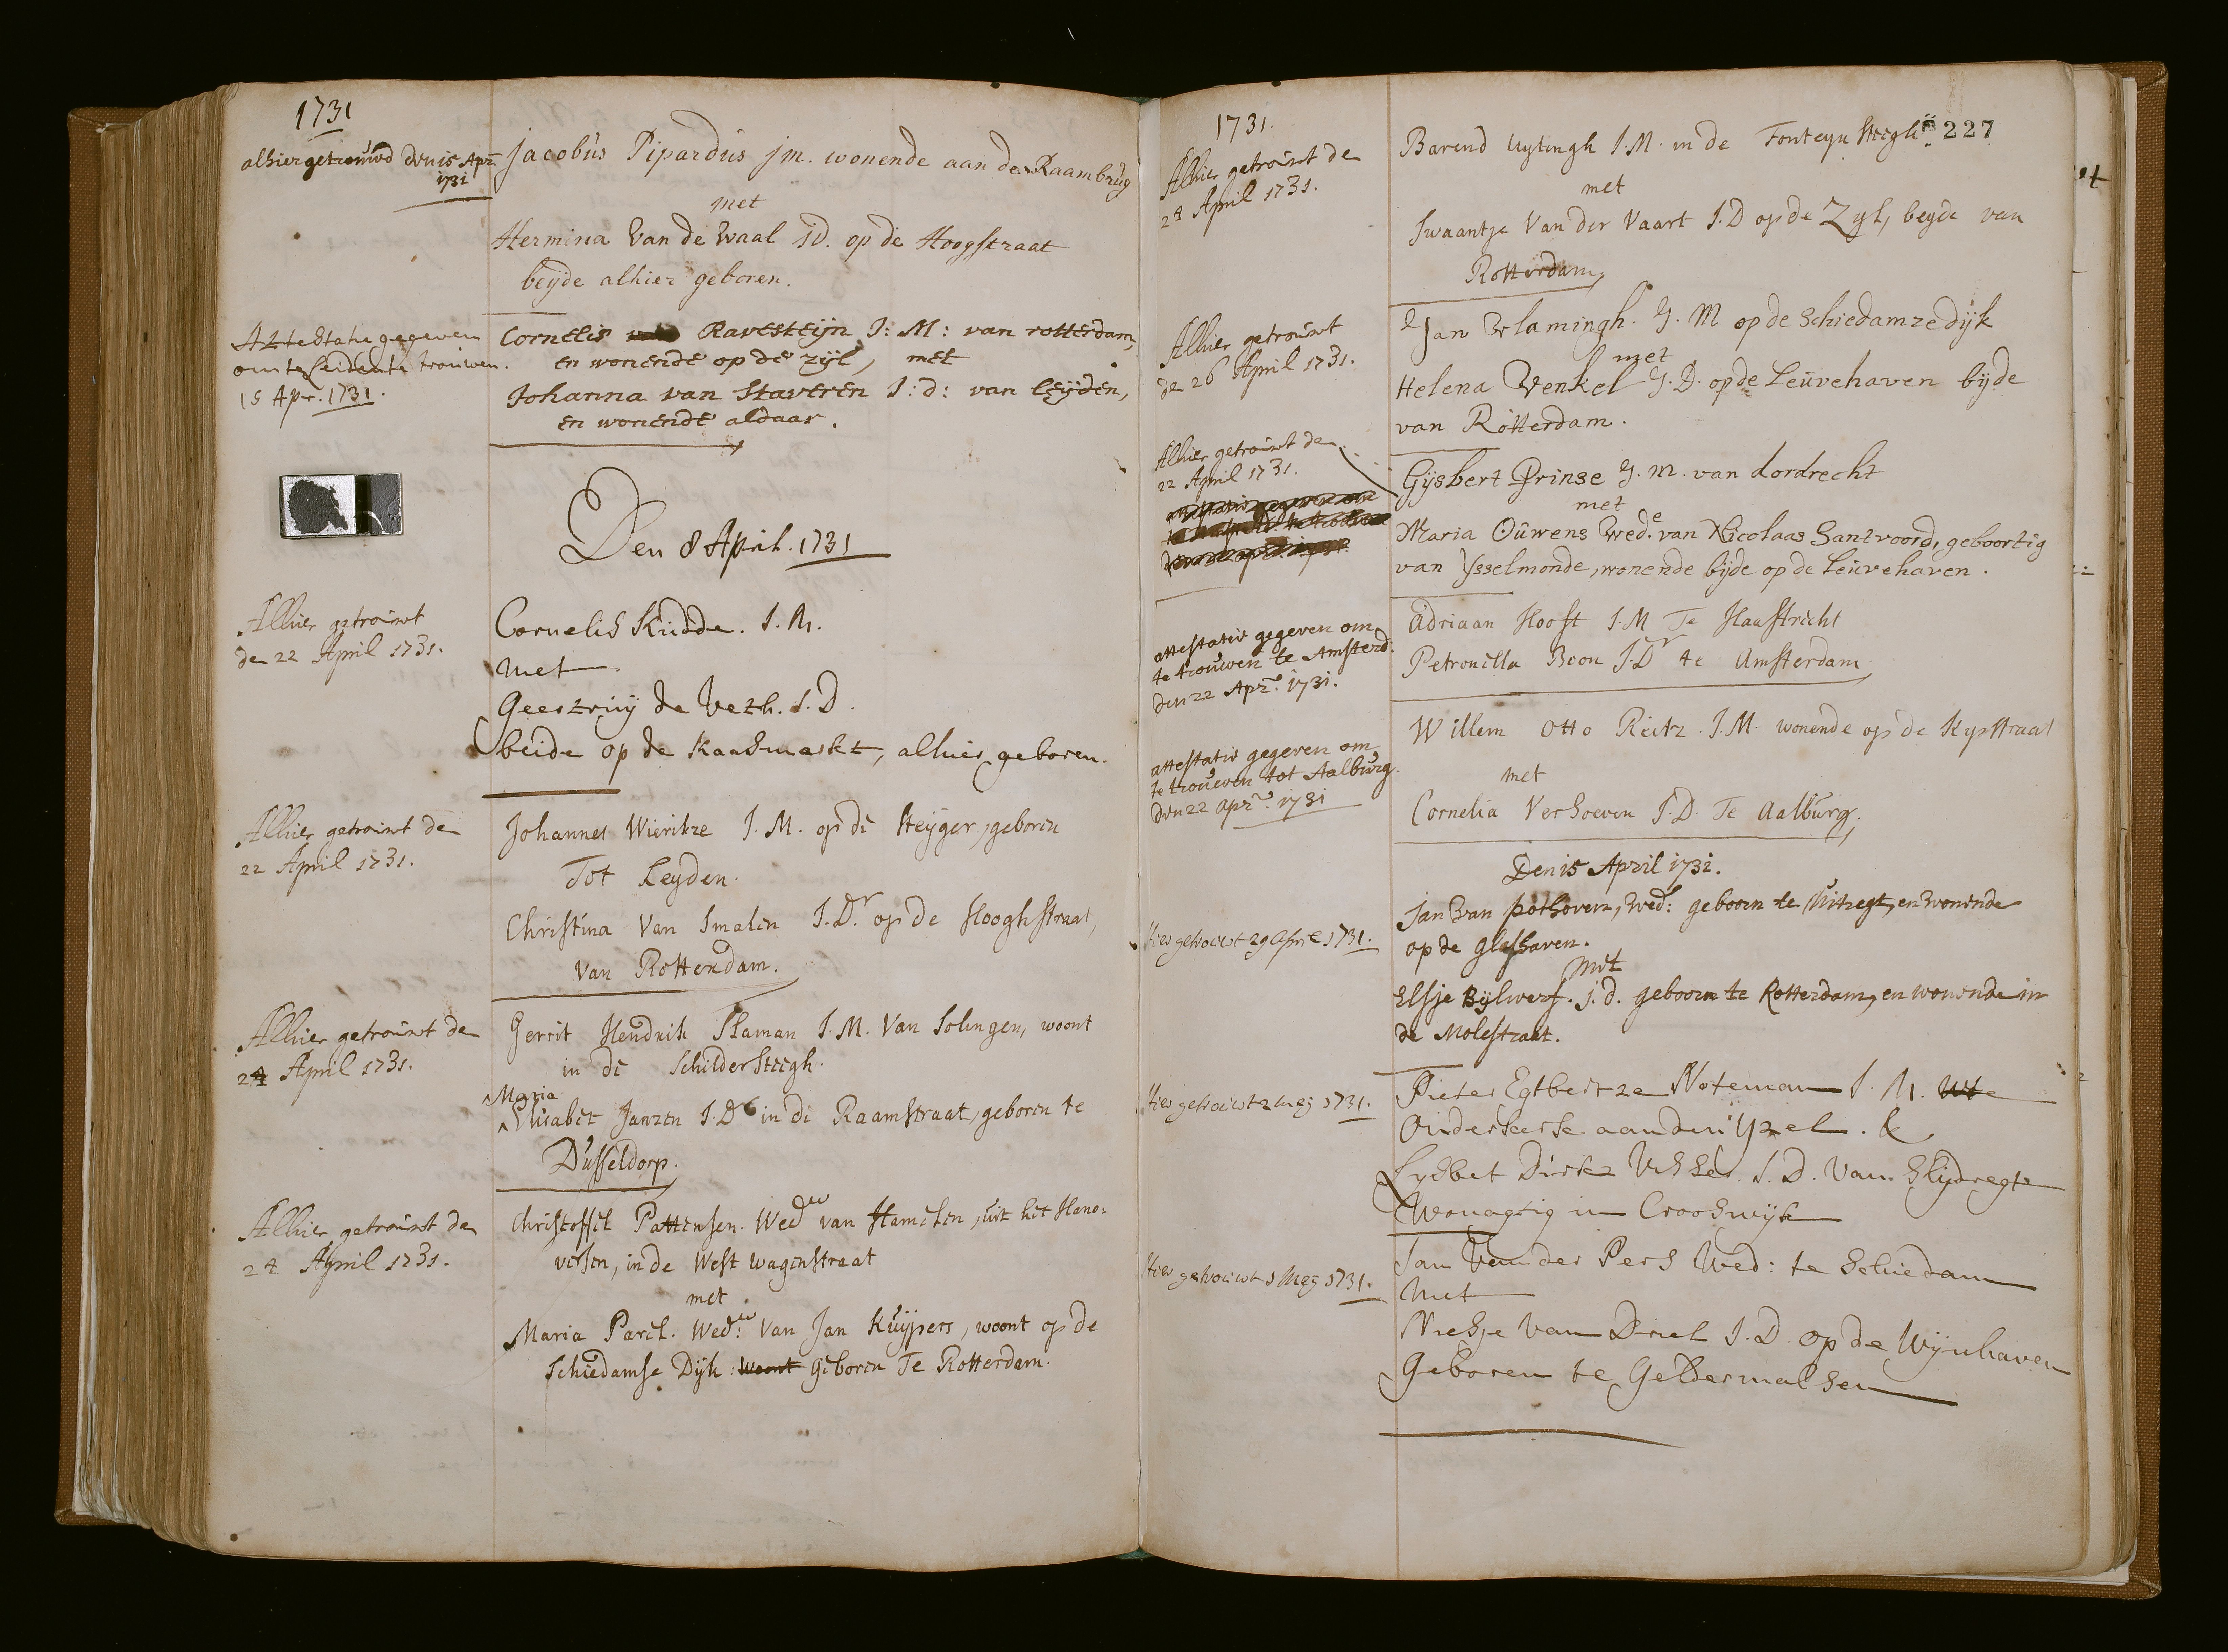 1731
alhier getrouwd den 15 Apr.
1731
Jacobus Pipardus jm. wonende aan de Raambrug
met
Hermina Van de Waal JD. op de Hoogstraat
beijde alhier geboren.
Attestatie gegeven
om te Leiden te trouwen.
15 Apr. 1731.
Cornelis Ravesteijn J: M: van rotterdam,
en wonende op de zijl, met
Johanna van Staveren J: d: van leijden,
en wonende aldaar.
Den 8 April. 1731
Alhier getrouwt
de 22 April 1731.
Cornelis Kudde. J. M.
met
Geertruij de Veth. J. D.
beide op de Kaasmarkt, alhier geboren.
Alhier getrouwt de
22 April 1731.
Johannes Wieritze J. M. op de Steyger, geboren
Tot Leyden.
Christina Van Smalen J. Dr. op de Hooghstraat,
Van Rotterdam.
Alhier getrouwt de
24 April 1731.
Gerrit Hendrik Plaman J. M. Van Solingen, woont
in de Schildersteegh.
Maria
Elisabet Janzen J. D in de Raamstraat, geboren te
Dusseldorp.
Alhier getrouwt de
24 April 1731.
Christoffel Pattensen. Wedr van Hamelen, uit het Hano-
versen, in de West wagenstraat
met
Maria Parel. Wede: Van Jan Kuijpers, woont op de
Schiedamse Dijk: woont geboren Te Rotterdam.
1731.
227
Alhier getrouwt de
24 April 1731.
Barend Uytingh J. M. in de Fonteyn steegh
met
Swaantje Van der Vaart J. D op de Zyl, beyde van
Rotterdam,
Alhier getrouwt
de 26 April 1731.
Jan Vlamingh. J. M op de Schiedamze dijk
met
Helena Venkel J. D. op de Leuvehaven bijde
van Rotterdam.
Alhier getrouwt de
22 April 1731.
Gijsbert Prinse J. m. van dordrecht
met
Maria Ouwens Wede. van Nicolaas Santvoord, geboortig
van Ysselmonde, wonende bijde op de Leuvehaven.
attestatie gegeven om
te trouwen te Amsterd.
den 22 Apr. 1731.
Adriaan Hooft J. M Te Haastricht
Petronella Boon J. Dr te Amsterdam
attestatie gegeven om
te trouwen tot Aalburg.
den 22 apr. 1731
Willem Otto Reitz. J. M. wonende op de Kypstraat
met
Cornelia Verhoeven J. D. Te Aalburg.
Den 15 April 1731.
Hier getrouwt 29 April 1731.
Jan Van pothoven, Wed: geboorn te Uitregt, en Wonende
op de glashaven.
Met
Elsje Bijlwerf. j. d. geboorn te Rotterdam, en wonende in
de Molestraat.
Hier getrouwt 2 Mey 1731.
Pieter Egbertze Noteman J. M. Wte
Ouderkerk aan den Yzel. &
Lysbet Dirkz Visser. J. D. Van Slijdregt
Wonagtig in Crooswijk
Hier getrouwt 1 Mey 1731.
Jan Van der Pers Wed: te Schiedam
Met
Niesje Van Driel J. D. op de Wijnhaven
Geboren te Geldermalsen